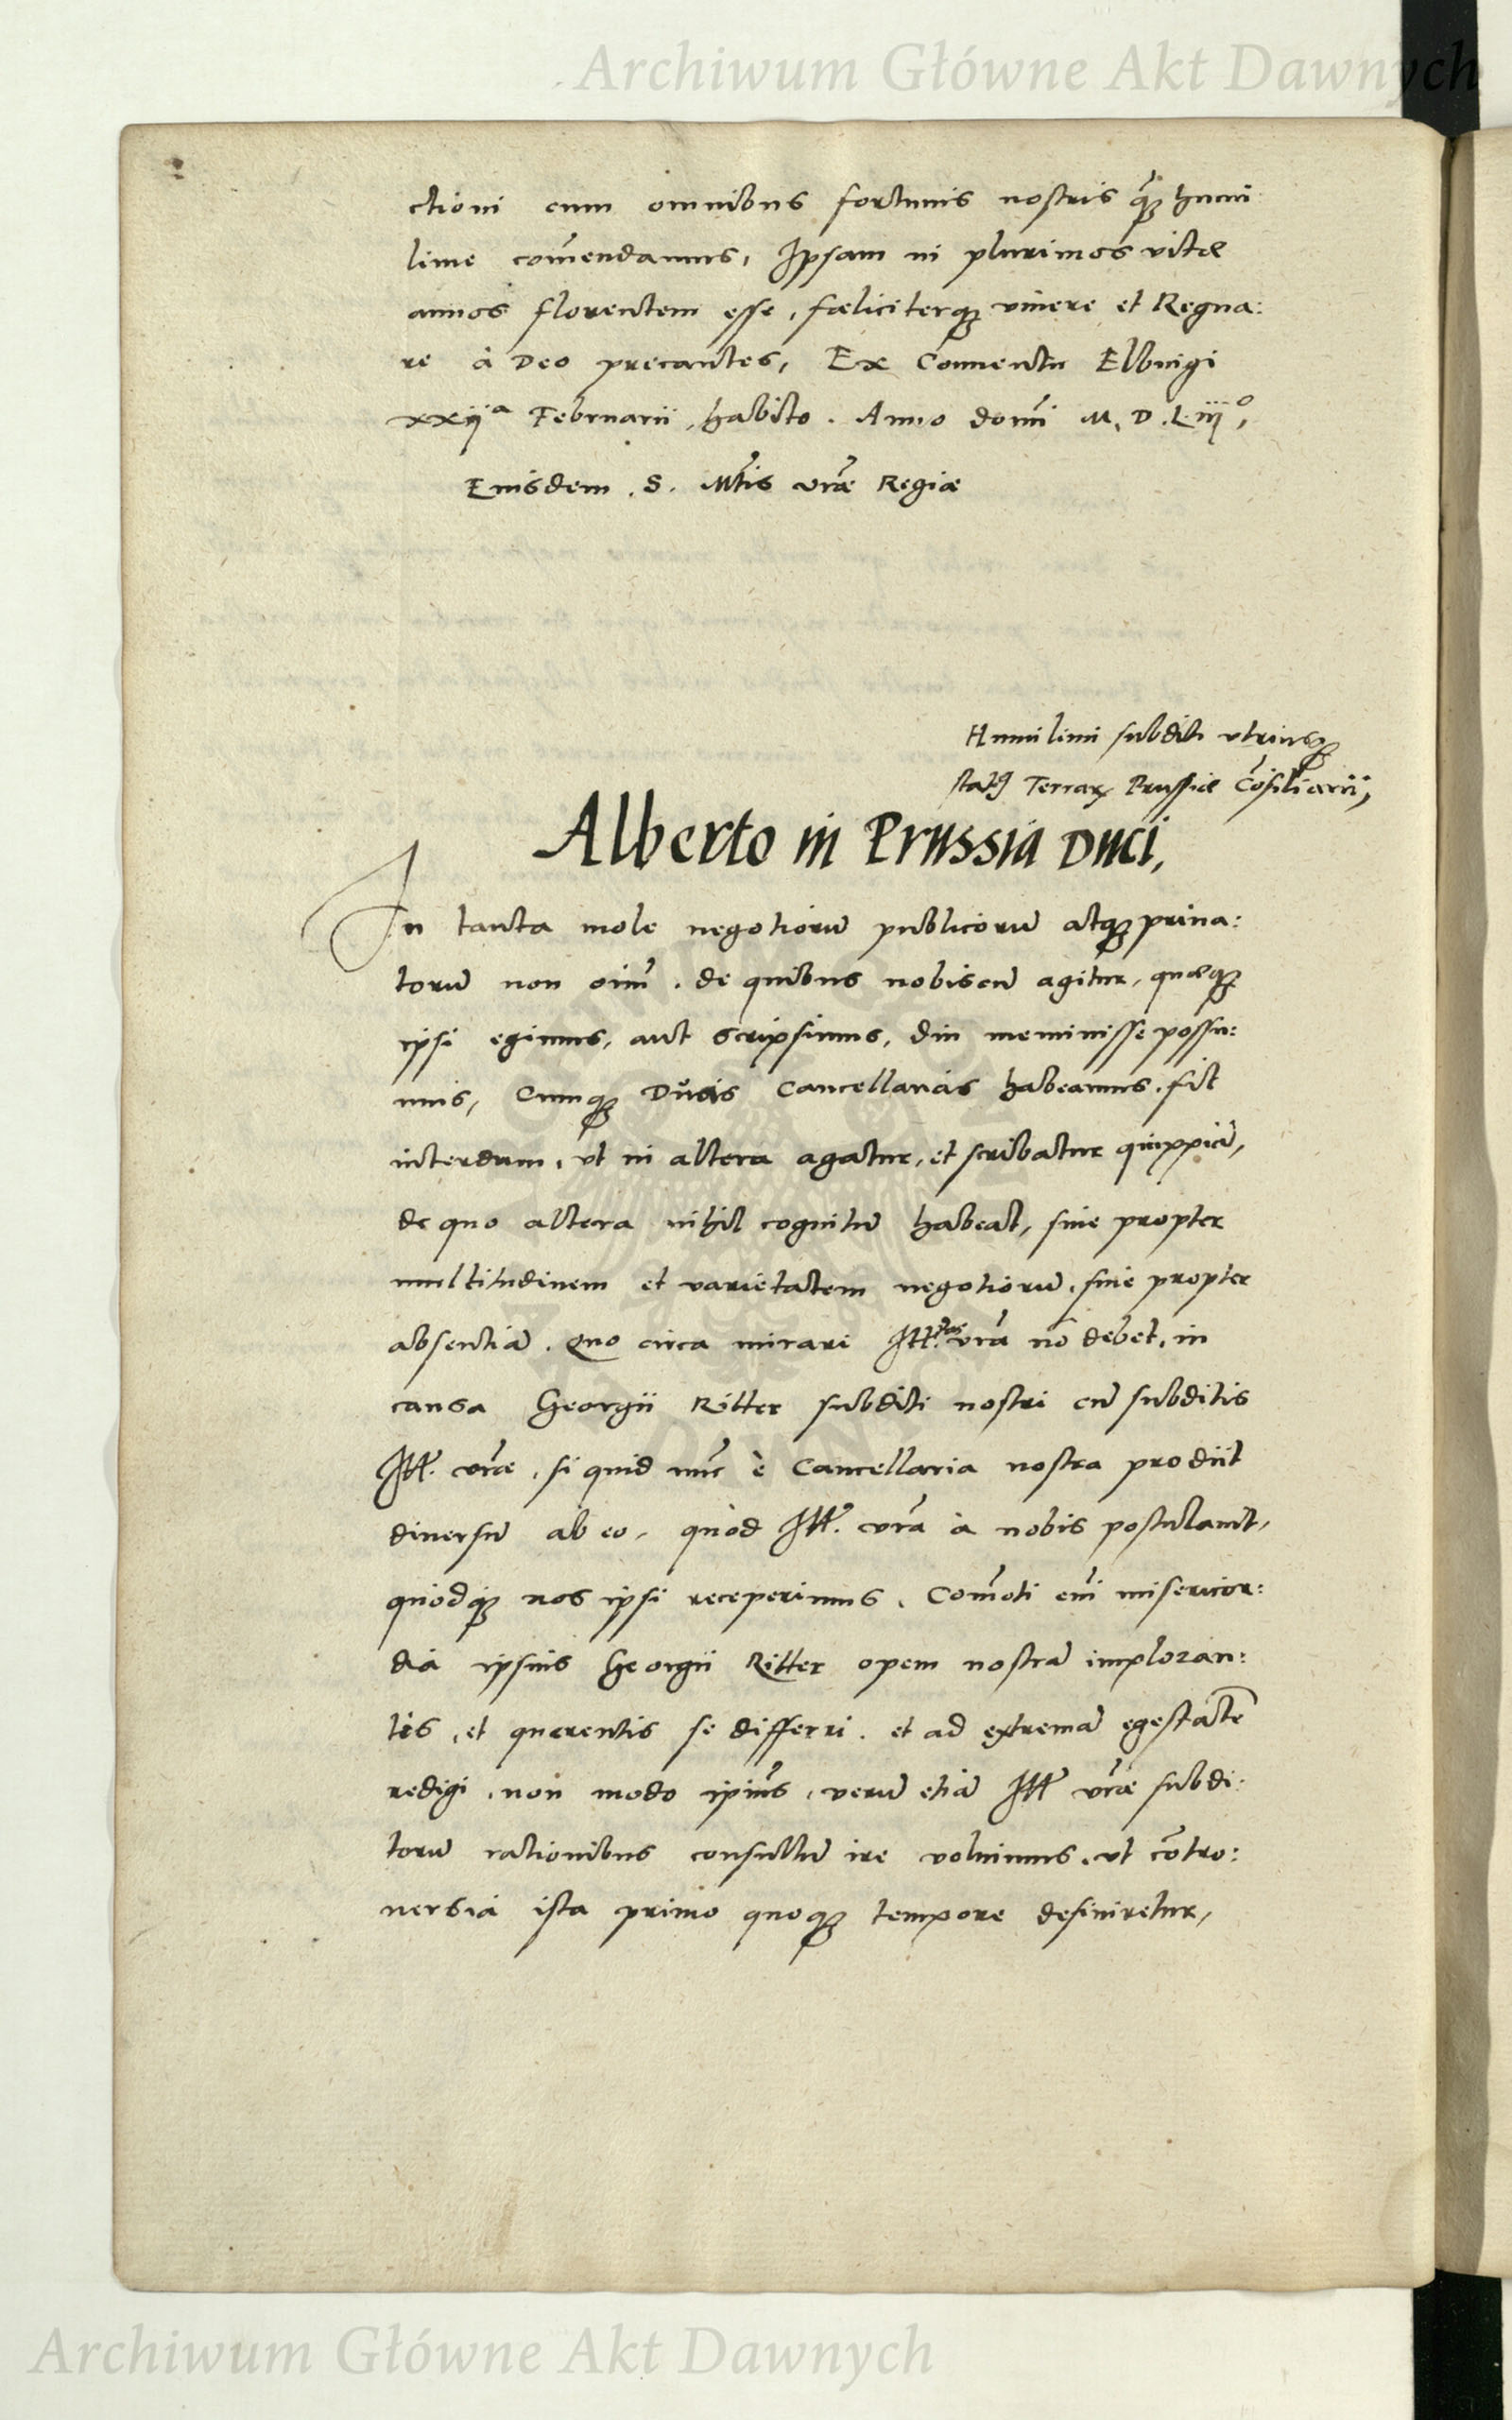 Archiwum Główne Akt Dawnych
ctioni cum omnibus fortunis nostris q̃ꝫ humi
lime com̃endamus, Ipsam in plurimos vitæ
annos florentem esse, fœliciterqꝫ viuere et Regna:
re à Deo precantes, Ex Conuentu Elbingi
xxijᵃ Februarii, habito. Anno domĩ M. D. Liijº,
Eiusdem .S. Mt̃is vr̃æ Regiæ
Humilimi subditi vtriusqꝫ
Terraꝝ Prussiæ Cõsiliarii,
Alberto in Prussia Duci,
In tanta mole negotiorũ publicorũ atqꝫ priua:
torũ non oim̃. de quibus nobiscũ agitur, quæqꝫ
ipsi egimus, aut scripsimus, diu meminisse possu:
mus, Cumqꝫ Duas Cancellarias habeamus. fit
interdum, vt in altera agatur, et scribatur quippiã,
de quo altera nihil cognitũ habeat, siue propter
multitudinem et varietatem negotiorũ, siue propter
absentiã. Quo circa mirari Ill. vr̃a nõ debet, in
causa Georgii Ritter subditi nostri cũ subditis
Ill. vr̃æ, si quid nũc è Cancellaria nostra prodiit
diuersũ ab eo, quòd Ill. vr̃a à nobis postulauit,
quodqꝫ nos ipsi receperimus. Com̃oti em̃ misericor:
dia ipsius Georgii Ritter opem nostrã imploran:
tis, et quærentis se differri. et ad extremã egestatẽ
redigi, non modo ip̃ius, verũ etiã Ill. vr̃æ subdi:
torũ rationibus consultũ ire voluimus, vt cõtro:
uersia ista primo quoqꝫ tempore definiretur,
Archiwum Główne Akt Dawnych